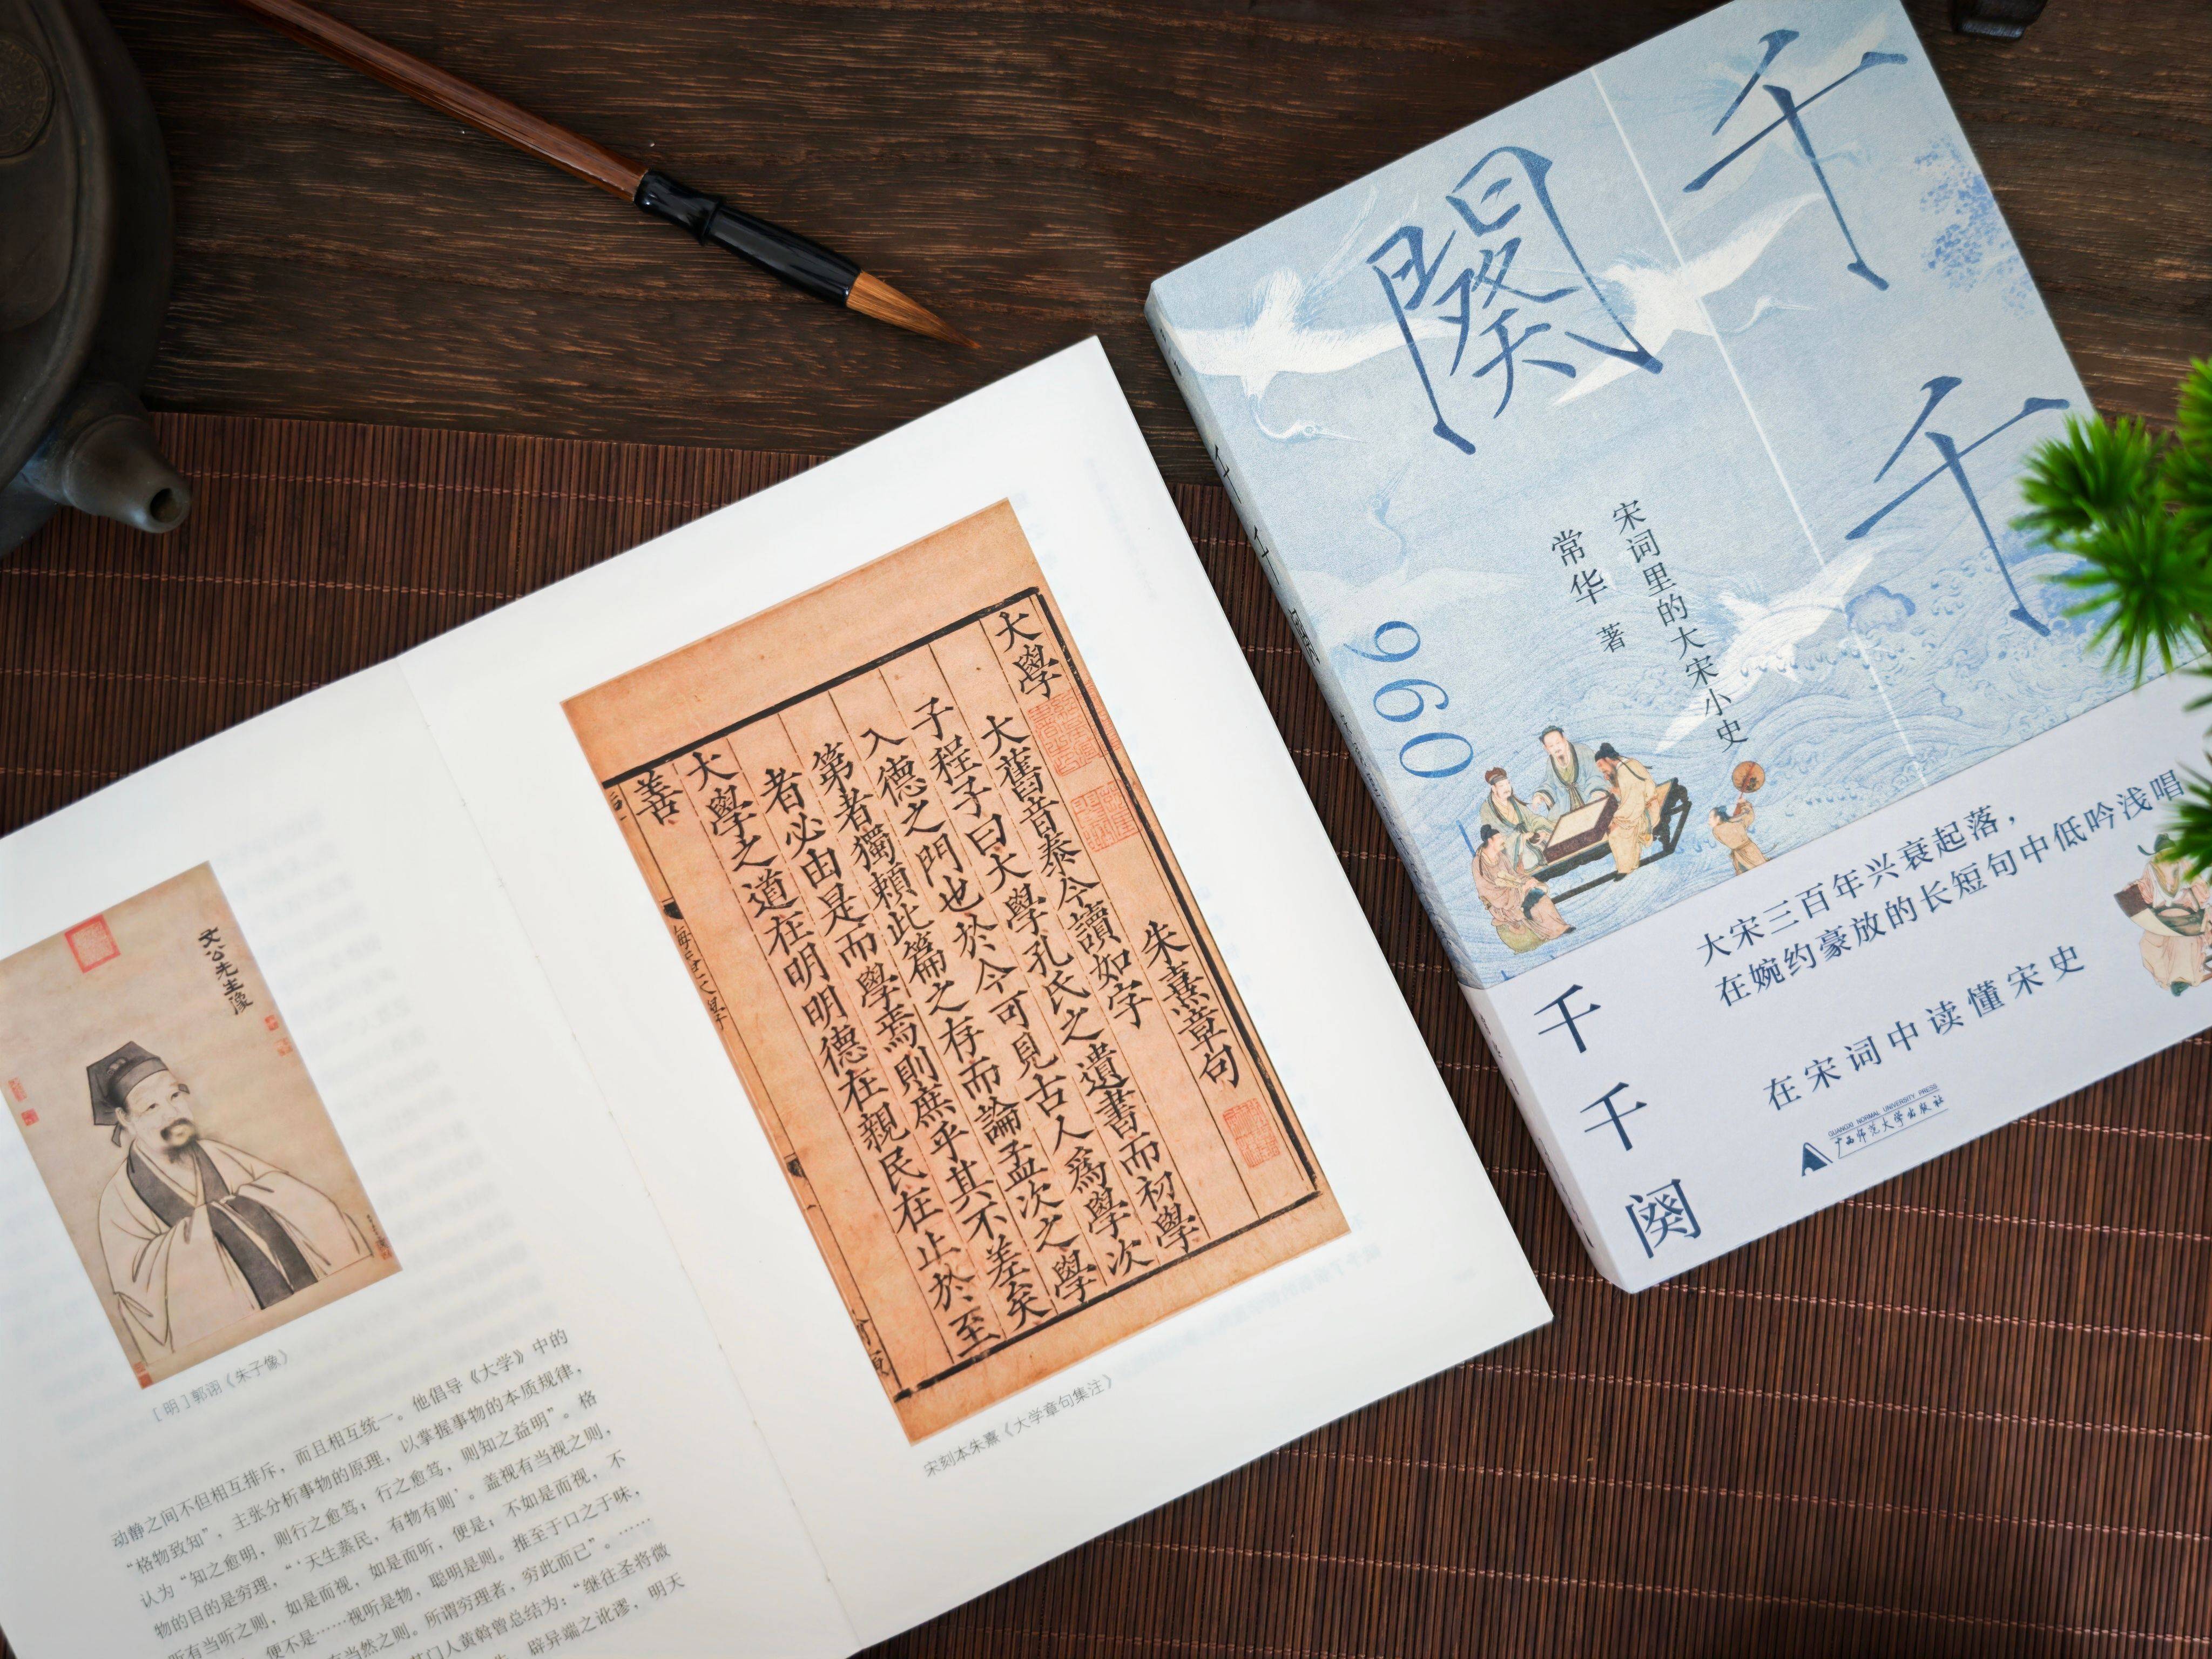 文公先生像
[明]郭诩《朱子像》
动静之间不但相互排斥，而且相互统一。他倡导《大学》中的
“格物致知”，主张分析事物的原理，以掌握事物的本质规律，
认为“知之愈明，则行之愈笃；行之愈笃，则知之益明”。格
物的目的是穷理，“‘天生蒸民，有物有则’。盖视有当视之则，
听有当听之则，如是而视，如是而听，便是；不如是而视，不
便不是……视听是物，聪明是则。推至于口之于味，
当然之则。所谓穷理者，穷此而已”。……
门人黄榦曾总结为：“继往圣将微
辟异端之讹谬，明天
大學
朱熹章句
大舊音泰今讀如字
子程子曰大學孔氏之遺書而初學
入德之門也於今可見古人爲學次
第者獨賴此篇之存而論孟次之學
者必由是而學焉則庶乎其不差矣
大學之道在明明德在親民在止於至
善
宋刻本朱熹《大学章句集注》
千千
闋
宋词里的大宋小史
常华 著
960
大宋三百年兴衰起落，
在婉约豪放的长短句中低吟浅唱
在宋词中读懂宋史
GUANGXI NORMAL UNIVERSITY PRESS
广西师范大学出版社
千千阕